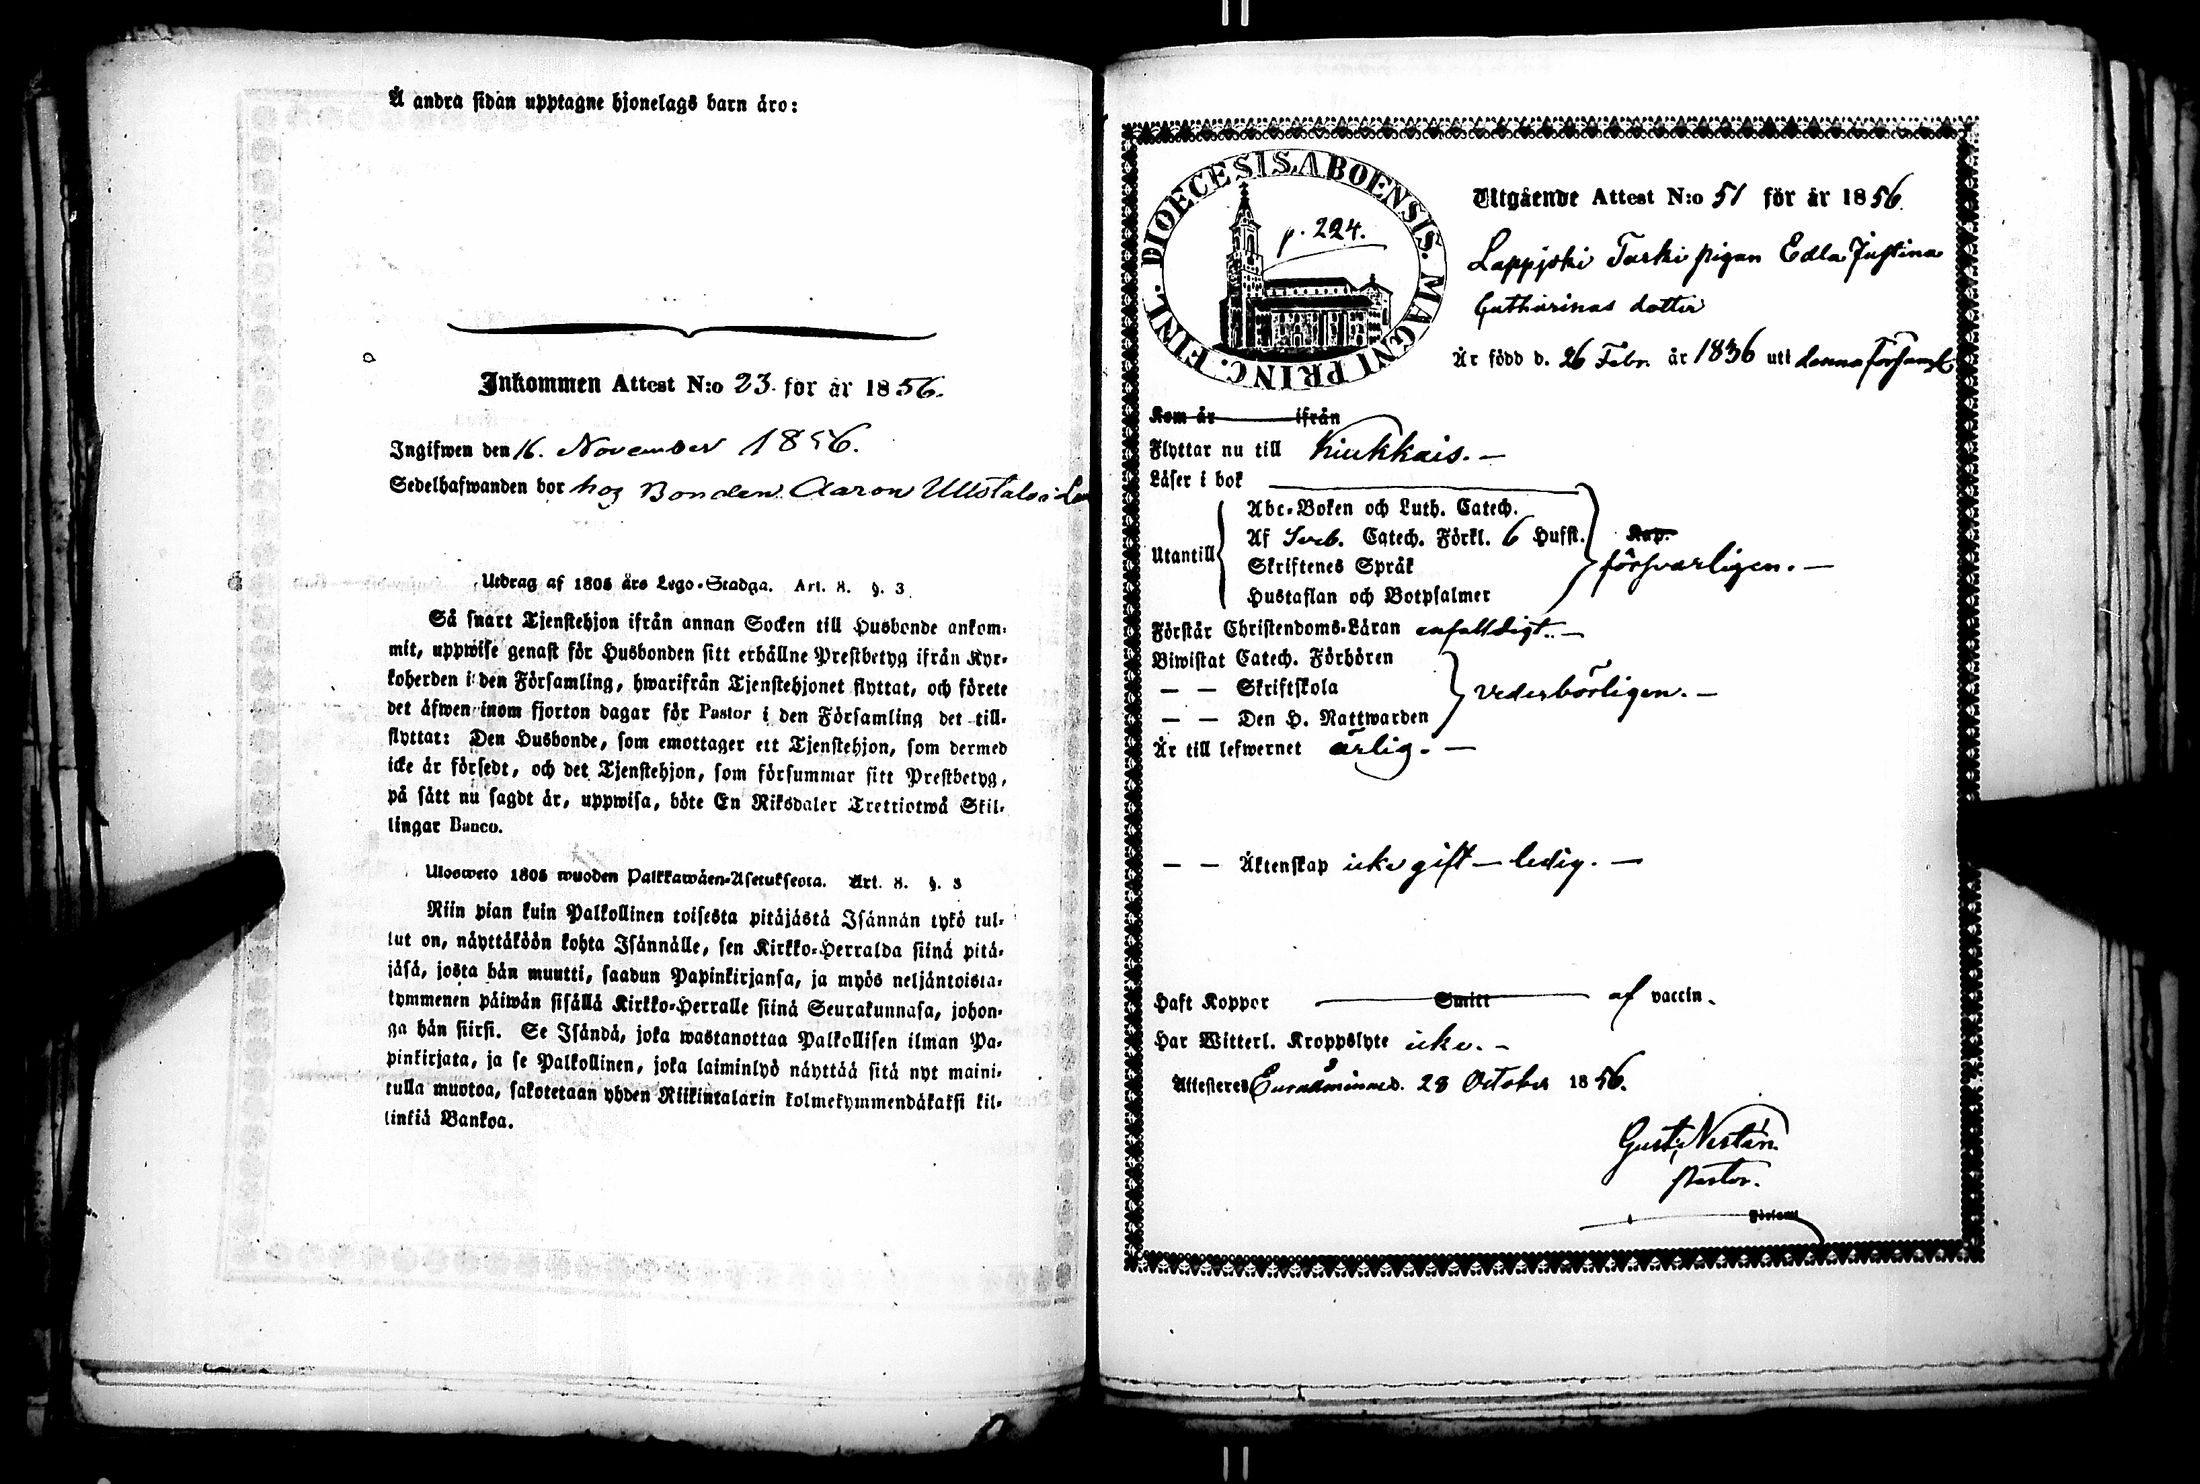 Å andra sidan upptagne hjonelags barn äro:
Inkommen Attest N:o 23. för år 1856.
Ingifwen den 16. November 1856.
Sedelhafwanden bor hos Bonden Aaron Ullstalo i
Utdrag af 1805 års Lego-Stadga. Art. 8. §. 3
Så snart Tjenstehjon ifrån annan Socken till Husbonde ankom-
mit, uppwise genast för Husbonden sitt erhållne Prestbetyg ifrån Kyr-
koherden i den Församling, hwarifrån Tjenstehjonet flyttat, och förete
det äfwen inom fjorton dagar för Pastor i den Församling det till-
flyttat: Den Husbonde, som emottager ett Tjenstehjon, som dermed
icke är försedt, och det Tjenstehjon, som försummar sitt Prestbetyg,
på sätt nu sagdt är, uppwisa, böte En Riksdaler Trettiotwå Skil-
lingar Banco.
Ulosweto 1805 wuoden Palkkawäen-Asetuksesta. Art. 8. §. 3
Niin pian kuin Palkollinen toisesta pitäjästä Isännän tykö tul-
lut on, näyttäköön kohta Isännälle, sen Kirkko-Herralda siinä pitä-
jäsä, josta hän muutti, saadun Papinkirjansa, ja myös neljäntoista-
kymmenen päiwän sisällä Kirkko-Herralle siinä Seurakunnasa, johon-
ga hän siirsi. Se Isändä, joka wastanottaa Palkollisen ilman Pa-
pinkirjata, ja se Palkollinen, joka laiminlyö näyttää sitä nyt maini-
tulla muotoa, sakotetaan yhden Riikintalarin kolmekymmendäkaksi kil-
linkiä Bankoa.
DIOECESIS ABOENSIS. MAGNI PRINC. FINL.
p. 224.
Utgående Attest N:o 51 för år 1856.
Lappjoki Tarki pigan Edla Justina
Catharinas dotter
Är född d. 26 Febr. år 1836 uti denna Församl.
Kom år ifrån
Flyttar nu till Kiukkais. —
Läser i bok
Utantill
Abc-Boken och Luth. Catech.
Af Sveb. Catech. Förkl. 6 Hufst.
Skriftenes Språk
Hustaflan och Botpsalmer
Kap.
försvarligen. —
Förstår Christendoms-Läran enfaldigt. —
Biwistat Catech. Förhören
— — Skriftskola
— — Den H. Nattwarden
vederbörligen. —
Är till lefwernet ärlig. —
— — Äktenskap icke gift — ledig. —
Haft Koppor Smitt af vaccin.
Har Witterl. Kroppslyte icke. —
Attesteres Euraåminne d. 28 October 1856.
Pastor.
Församl.